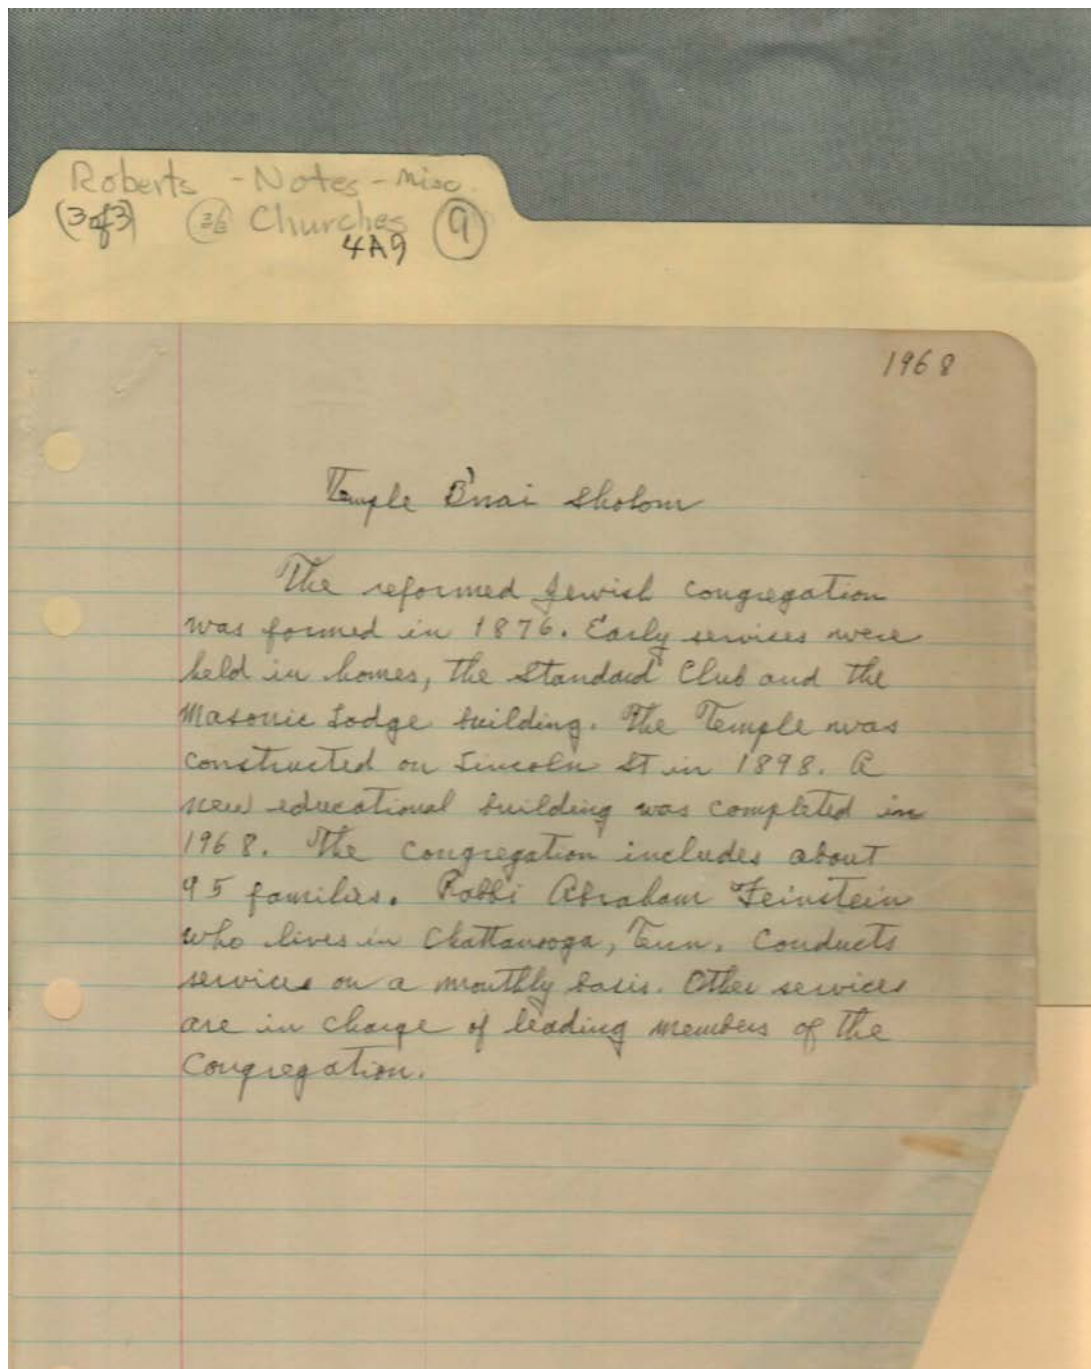 Roberts - Notes - Misc.
(3 of 3) 36 Churches 9
4A9
1968
Temple B'nai Sholom
The reformed Jewish congregation
was formed in 1876. Early services were
held in homes, the Standard Club and the
Masonic Lodge building. The Temple was
constructed on Lincoln St in 1898. A
new educational building was completed in
1968. The congregation includes about
95 families. Rabbi Abraham Feinstein
who lives in Chattanooga, Tenn. conducts
services on a monthly basis. Other services
are in charge of leading members of the
Congregation.